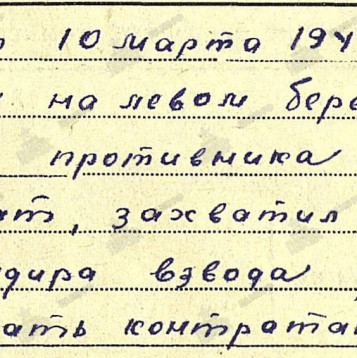 10 марта 194
на левом бере
противника
ат, захватил
дира взвода
ать контратак